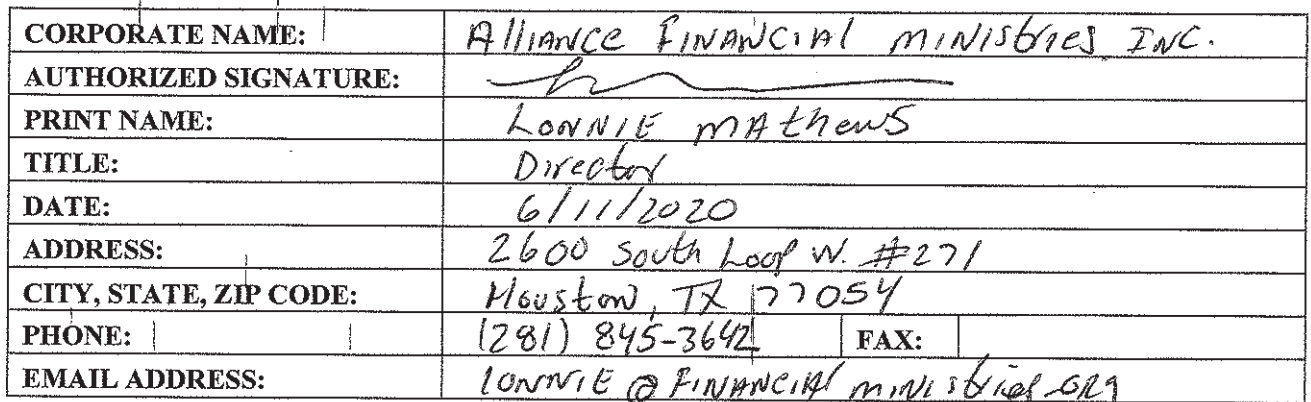 CORPORATE NAME: Alliance Financial Ministries Inc.
AUTHORIZED SIGNATURE:
PRINT NAME: Lonnie Mathews
TITLE: Director
DATE: 6/11/2020
ADDRESS: 2600 South Loop W. #271
CITY, STATE, ZIP CODE: Houston, TX 77054
PHONE: (281) 845-3642 FAX:
EMAIL ADDRESS: lonnie@financialministries.org